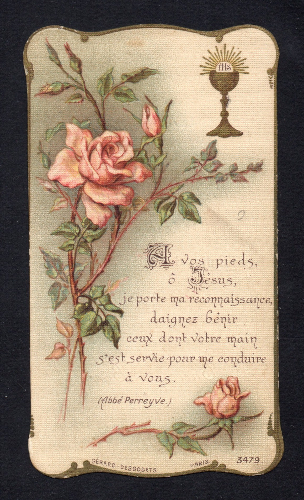 IHS
A vos pieds,
ô Jésus,
je porte ma reconnaissance,
daignez bénir
ceux dont votre main
s'est servie pour me conduire
à vous.
(Abbé Perreyve.)
3479
GÉRARD-DESGODETS PARIS